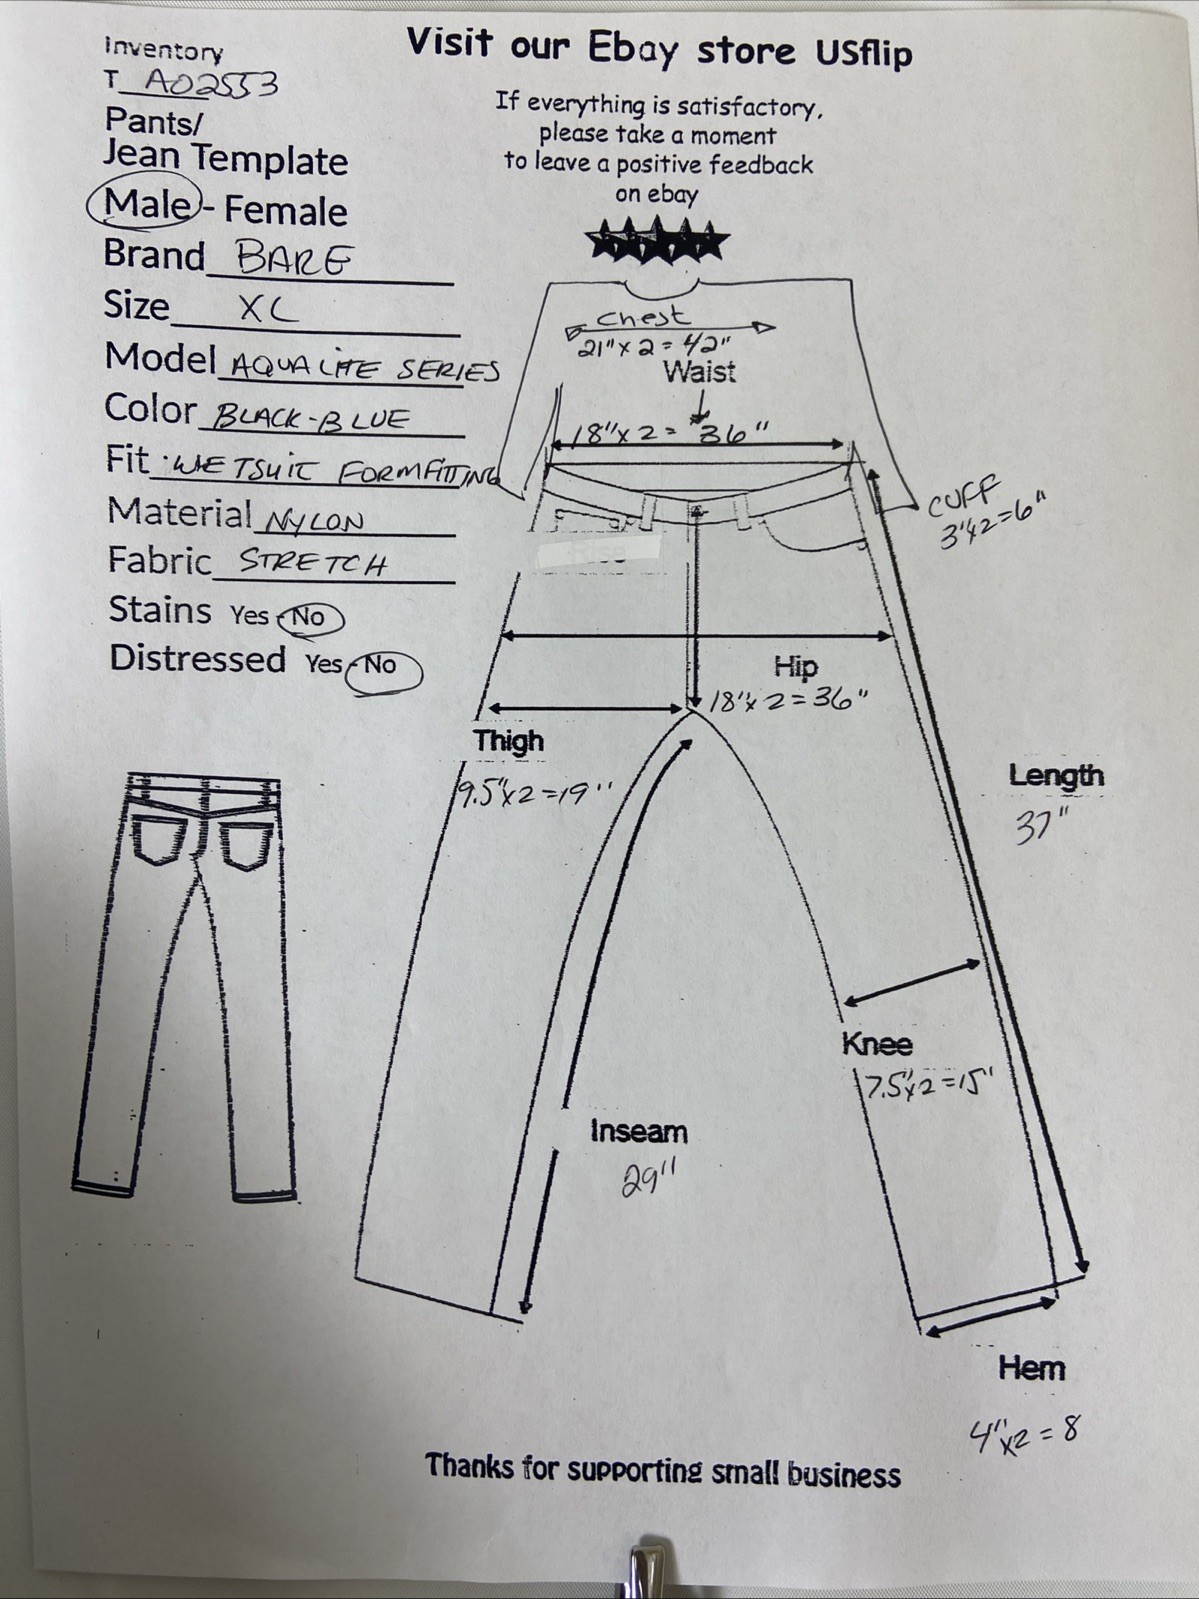 Inventory
T A02553
Pants/
Jean Template
Male - Female
Brand BARE
Size XL
Model AQUALITE SERIES
Color BLACK-BLUE
Fit WETSUIT FORMFITTING
Material NYLON
Fabric STRETCH
Stains Yes-No
Distressed Yes-No
Visit our Ebay store USflip
If everything is satisfactory,
please take a moment
to leave a positive feedback
on ebay
chest
21" x 2 = 42"
Waist
18" x 2 = 36"
CUFF
3" x 2 = 6"
Rise
Hip
18" x 2 = 36"
Thigh
9.5" x 2 = 19"
Length
37"
Knee
7.5" x 2 = 15"
Inseam
29"
Hem
4" x 2 = 8
Thanks for supporting small business